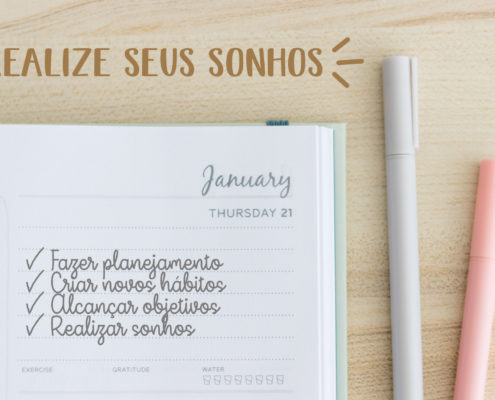 REALIZE SEUS SONHOS
January
THURSDAY 21
✓ Fazer planejamento
✓ Criar novos hábitos
✓ Alcançar objetivos
✓ Realizar sonhos
EXERCISE GRATITUDE WATER